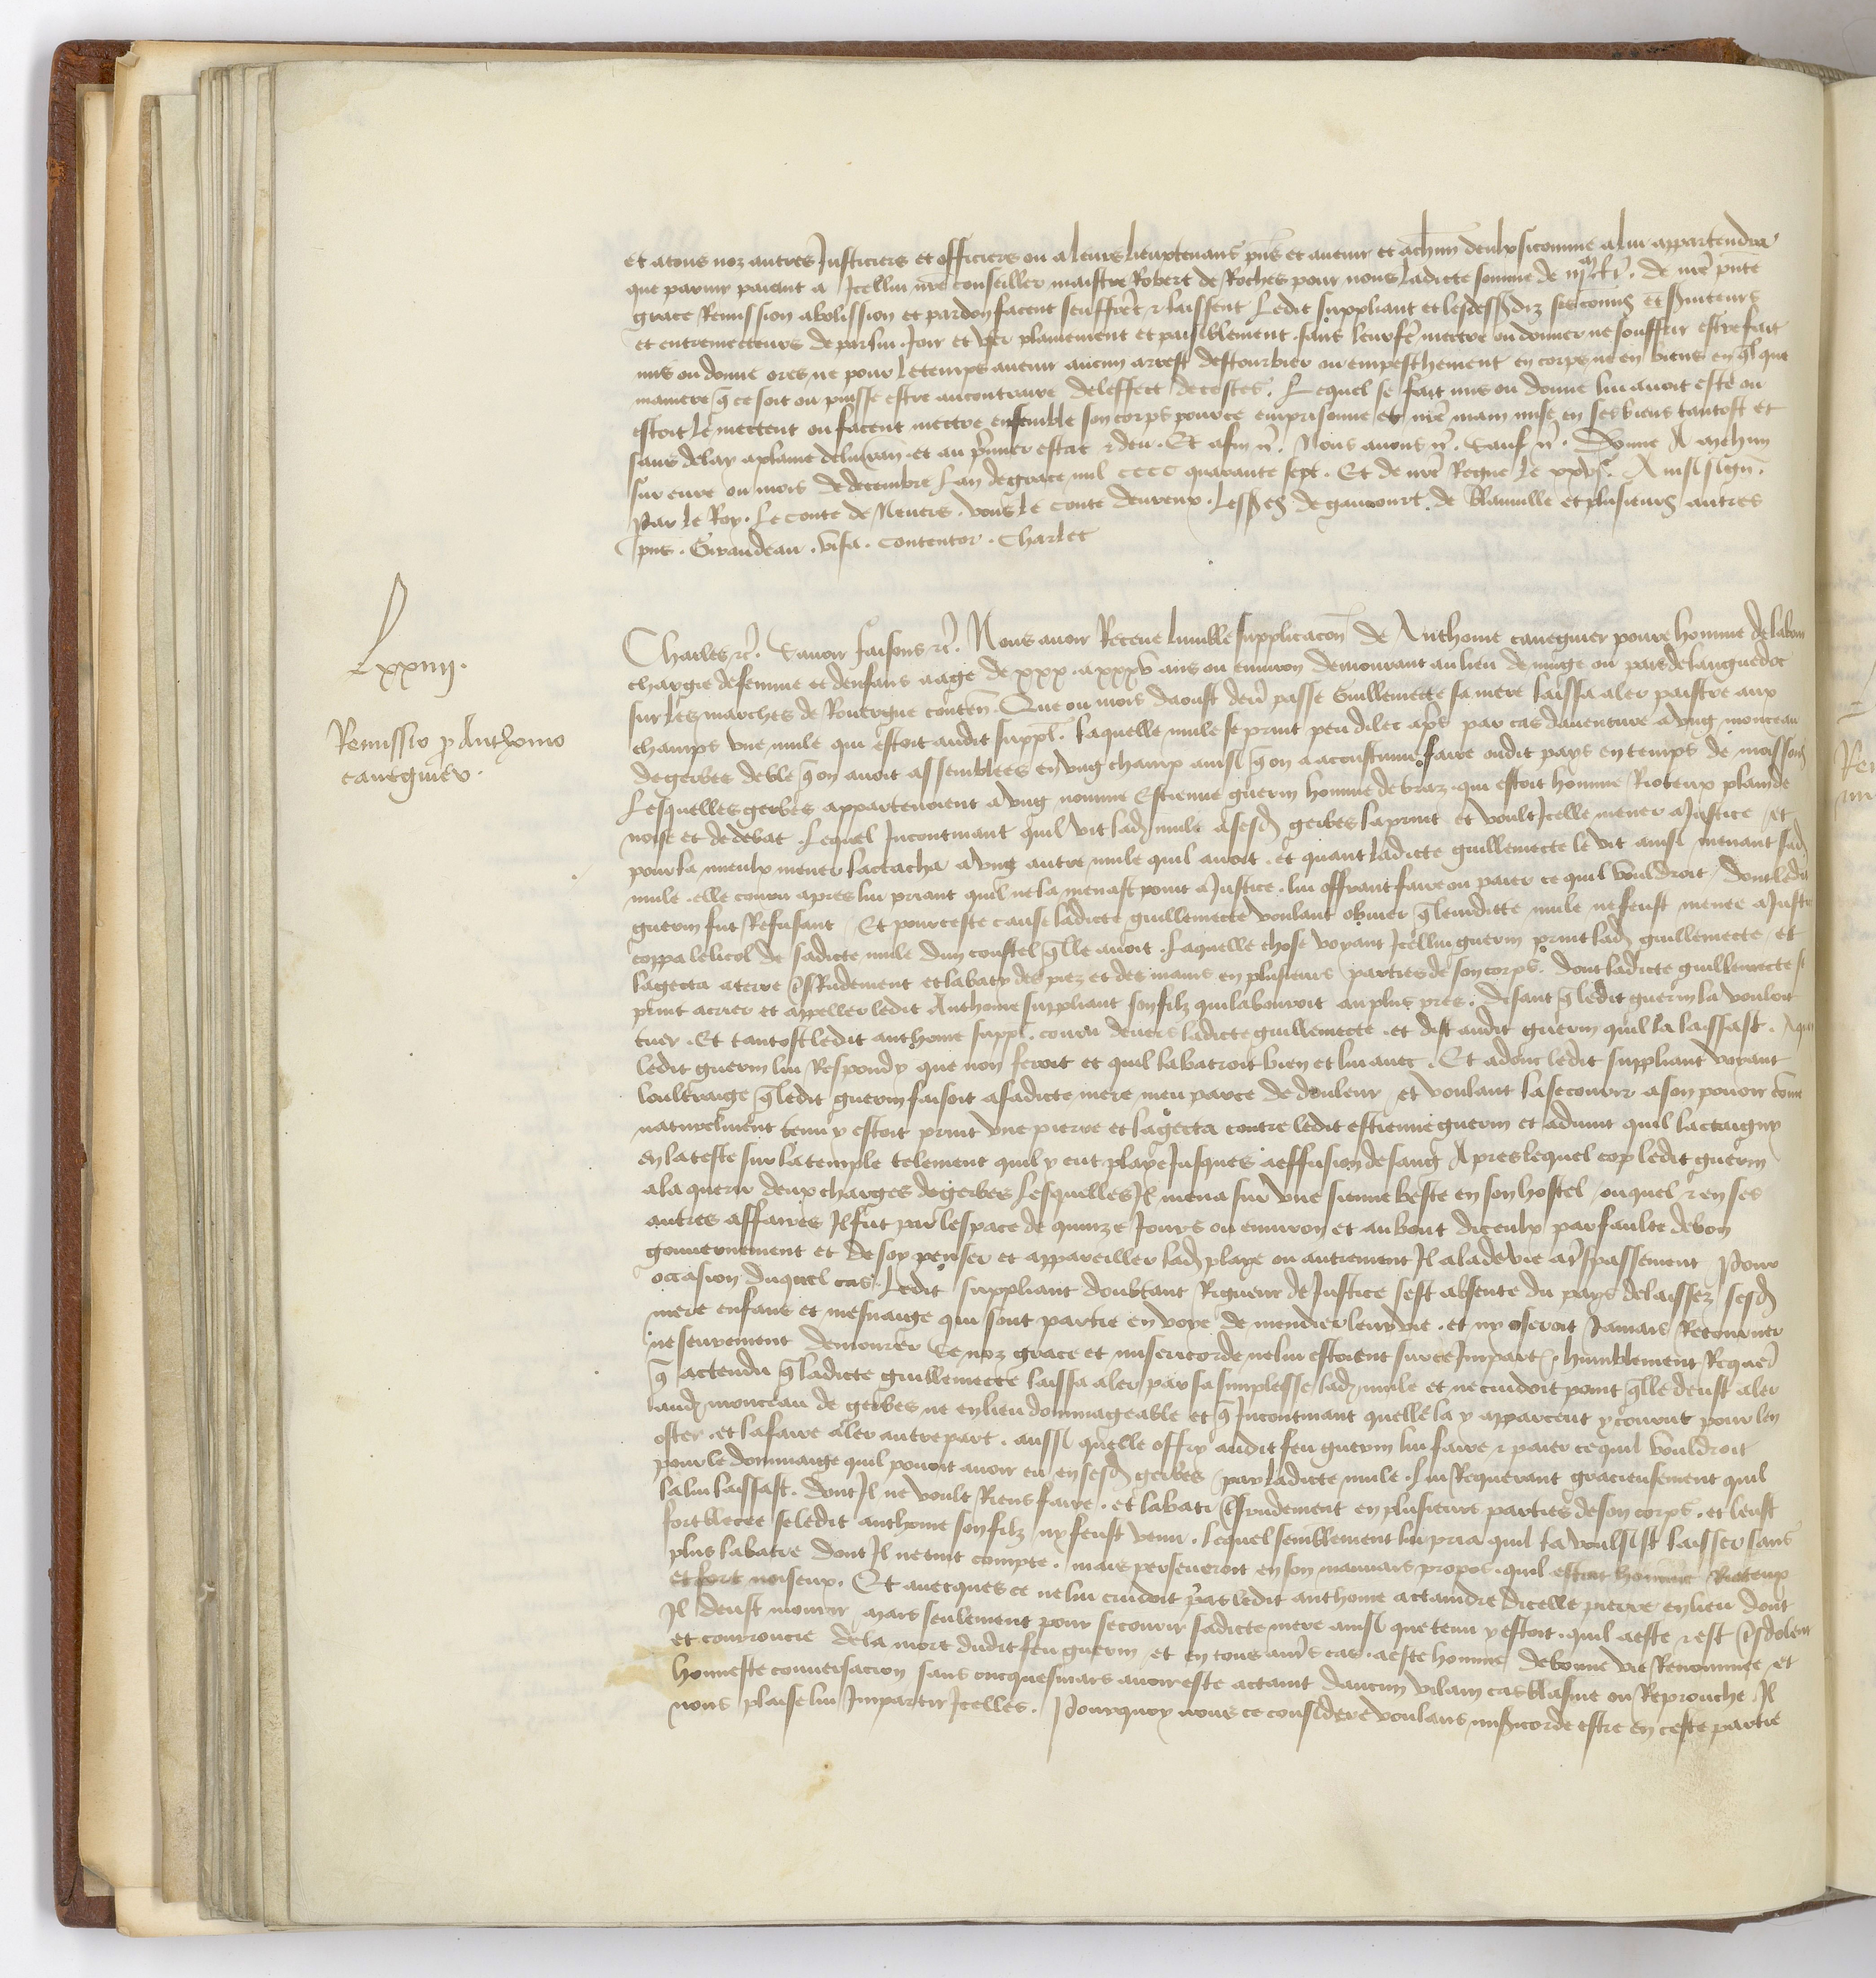 et a tous noz autres Justiciers et officiers ou a leurs lieuxtenans pns et avenir et a chun deulx sicomme a lui appartendra
que parmy paiant a Icellui nre conseiller maistre Robert de Roches pour nous ladicte somme de de nre pnte
grace Remission abolission et pardon facent seuffrent & laissent Ledit suppliant et lesdessusdiz
et entremecteurs de par lui Joir et user plainement et paisiblement sans leur fe mectre ou donner ne souffrir estre fait
mis ou donne ores ne pour le temps avenir aucun arrest destourbier ou empeschement en corps ne en biens en ql que
maniere q ce soit ou puisse estre au contraire de leffect de cestes. Lequel se fait mis ou donne lui avoit este ou
estoit le mectent ou facent mectre ensemble son corps pour ce emprisonne et nre main mise en ses biens tantost et
sans delay a plaine delivran et au pmier estat & deu. Et afin &c. Nous avons &c. Sauf &c. Donne A mehun
sur evre ou mois de decembre Lan de grace mil cccc quarante sept. Et de nre Regne le xxvi. Ainsi sign.
Par le Roy. Le conte de Nevers. vous le conte devreux. Les srs de gaucourt de blainville et plusieurs autres
pns. Giraudeau. visa. contentor. Charlet
Lxxiiij.
Remissio p Anthonio
caneguier.
Charles &c. Savoir faisons &c. Nous avoir Receue lumble supplicacon de Anthoine caneguier povre homme de labour
chargie de femme et denfans aage de xxx a xxxv ans ou environ demourant au lieu de ou pais de languedoc
sur les marches de Rouergue conten. Que ou mois daoust den passe Guillemecte sa mere laissa aler paistre aux
champs une mule qui estoit audit suppl. laquelle mule se print peu dilec aps par cas daventure a ung monceau
de gerbes de ble q on avoit assemblees en ung champ ainsi q on a acoustume faire oudit pays en temps de moissons
Lesquelles gerbes appartenoient a ung nomme Estienne guerin homme de braz qui estoit homme Rioteux plain de
noise et de debat. Lequel Incontinant quil vit lad mule a sesd gerbes la print et voult Icelle mener a Justice et
pour la mieulx mener lactacha a ung autre mule quil avoit. et quant ladicte guillemecte le vit ainsi menant sad
mule. elle couru apres lui priant quil ne la menast point a Justice. lui offrant faire ou paier ce quil vouldroit dont ledit
guerin fut Refusant Et pour ceste cause ladicte guillemecte voulant obvier q leurdicte mule ne feust menee a Justi
coppa le licol de sadicte mule dun coustel qlle avoit. Laquelle chose voyant Icellui guerin print lad guillemecte et
lagecta a terre tresRudement et la baty des piez et des mains en plusieurs parties de son corps. dont ladicte guillemecte s
print a crier et appeller ledit Anthoine suppliant son filz qui labouroit au plus pres. disant q ledit guerin la vouloit
tuer. Et tantost ledit anthoine suppl. couru devers ladicte guillemecte et dist audit guerin quil la laissast. A quoy
ledit guerin lui Respondy que non feroit et quil la batroit bien et lui avec. Et adonc ledit suppliant voyant
loultraige q ledit guerin faisoit a sadicte mere meu par ce de douleur et voulant la secourir a son povoir come
naturelment tenu y estoit print une pierre et la gecta contre ledit estienne guerin et advint quil lactaigny
en la teste sur la temple telement quil y eut playe Jusques a effusion de sang Apres lequel cop ledit guerin
ala querir deux charges de gerbes Lesquelles Il mena sur une sienne beste en son hostel ouquel & en ses
autres affaires Il fut par lespace de quinze Jours ou environ et au bout diceulx par faulte de bon
gouvernement et de soy penser et appareiller lad playe ou autrement Il ala de vie a trespassement Pour
occasion duquel cas Ledit suppliant doubtant Rigueur de Justice sest absente du pays delaissez sesd
mere enfans et mesnaige qui sont partie en voye de mendier leur vie. et ny oseroit Jamais Retourner
ne seurement demourer se noz grace et misericorde ne lui estoient sur ce Imparties humblement Requer
q actendu q ladicte guillemecte laissa aler par sa simplesse lad mule et ne cuidoit point qlle deust aler
aud monceau de gerbes ne en lieu dommageable et q Incontinant quelle la y apparceut y courut pour len
oster. et la faire aler autre part. aussi quelle offry audit feu guerin lui faire & paier ce quil vouldroit
pour le dommaige quil povoit avoir eu en sesd gerbes par ladicte mule. Lui Requerant gracieusement quil
la lui laissast. Dont Il ne voult Riens faire. et la bati tresrudement en plusieurs parties de son corps. et leust
fort blecee se ledit anthoine son filz ny feust venu. lequel semblement lui pria quil la voulsist laisser sans
plus la batre dont Il ne tint compte. mais perseveroit en son mauvais propos. quil estoit homme Rioteux
et fort noiseux. Et avecques ce ne lui cuidoit pas ledit anthoine actaindre dicelle pierre en lieu dont
Il deust mourir mais seulement pour secourir sadicte mere ainsi que tenu y estoit. quil a este & est tresdolent
et courroucie de la mort dudit feu guerin et en tous autrs cas a este homme de bonne vie Renommee et
honneste conversacion sans oncquesmais avoir este actaint daucun vilain cas blasme ou Reprouche Il
nous plaise lui Impartir Icelles. Pourquoy nous ce considere voulans misericorde estre en ceste partie